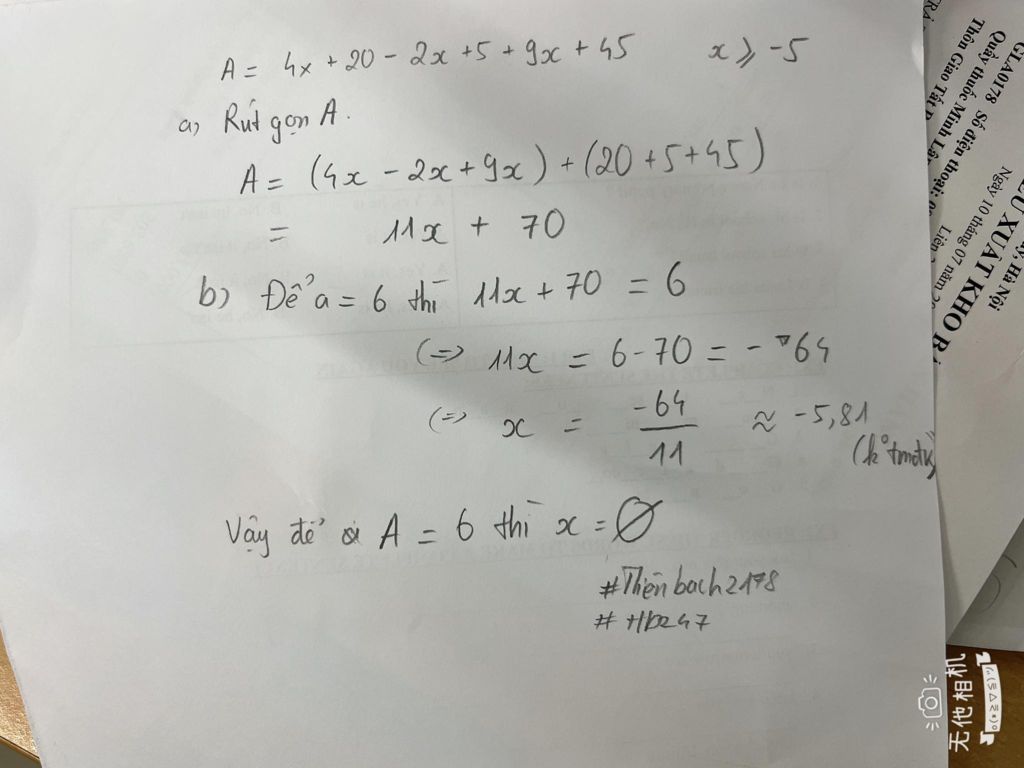 A = 4x + 20 - 2x + 5 + 9x + 45     x ⩾ -5
a) Rút gọn A.
A = (4x - 2x + 9x) + (20 + 5 + 45)
= 11x + 70
b) Để a = 6 thì 11x + 70 = 6
(=) 11x = 6 - 70 = - 64
(=) x = -64/11 ≈ -5,81
(k° tmđk)
Vậy để A = 6 thì x = ∅
#Thiênbach2178
Số điện thoại:
Quầy thuốc Minh
Thôn Giáo Tất,
Hà Nội
XUẤT KHO
Ngày 10 tháng 07 năm
无他相机